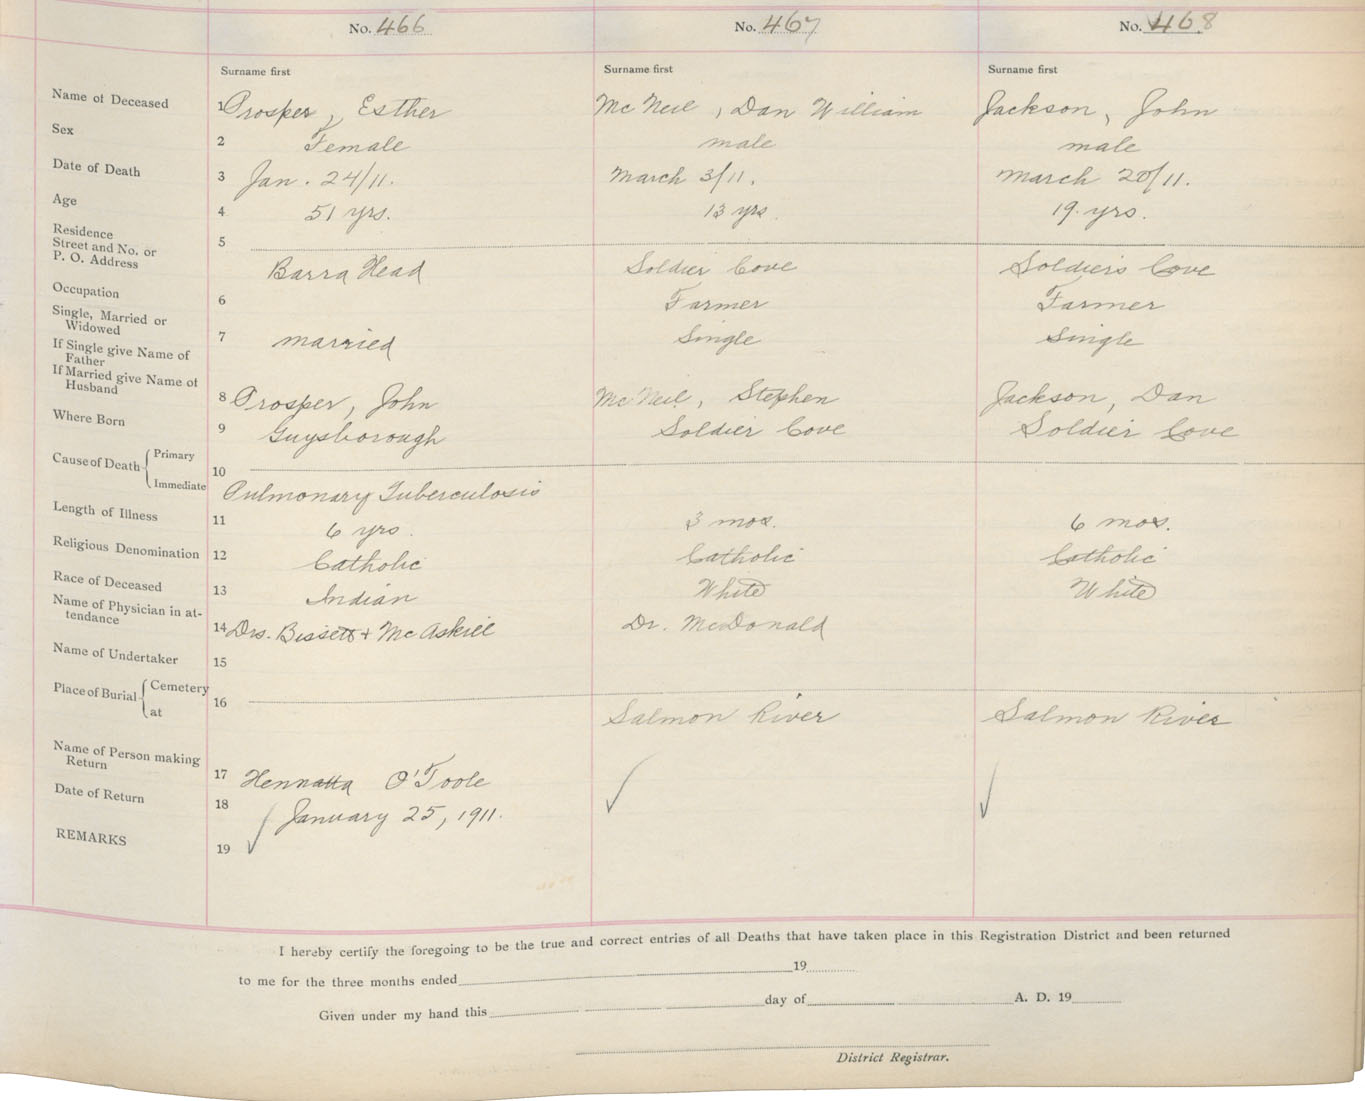 No. 466 No. 467 No. 468
Surname first Surname first Surname first
Name of Deceased 1 Prosper, Esther McNeil, Dan William Jackson, John
Sex 2 Female male male
Date of Death 3 Jan. 24/11. March 3/11. March 20/11.
Age 4 51 yrs. 13 yrs. 19 yrs.
Residence 5
Street and No. or
P. O. Address Barra Head Soldier Cove Soldier's Cove
Occupation 6 Farmer Farmer
Single, Married or
Widowed 7 married Single Single
If Single give Name of
Father
If Married give Name of
Husband 8 Prosper, John McNeil, Stephen Jackson, Dan
Where Born 9 Guysborough Soldier Cove Soldier Cove
Cause of Death Primary 10
Immediate Pulmonary Tuberculosis
Length of Illness 11 6 yrs. 3 mos. 6 mos.
Religious Denomination 12 Catholic Catholic Catholic
Race of Deceased 13 Indian White White
Name of Physician in at-
tendance 14 Drs. Bissett + McAskill Dr. McDonald
Name of Undertaker 15
Place of Burial Cemetery 16
at Salmon River Salmon River
Name of Person making
Return 17 Hennatta O'Toole
Date of Return 18 January 25, 1911.
REMARKS 19
I hereby certify the foregoing to be the true and correct entries of all Deaths that have taken place in this Registration District and been returned
to me for the three months ended 19
Given under my hand this day of A. D. 19
District Registrar.